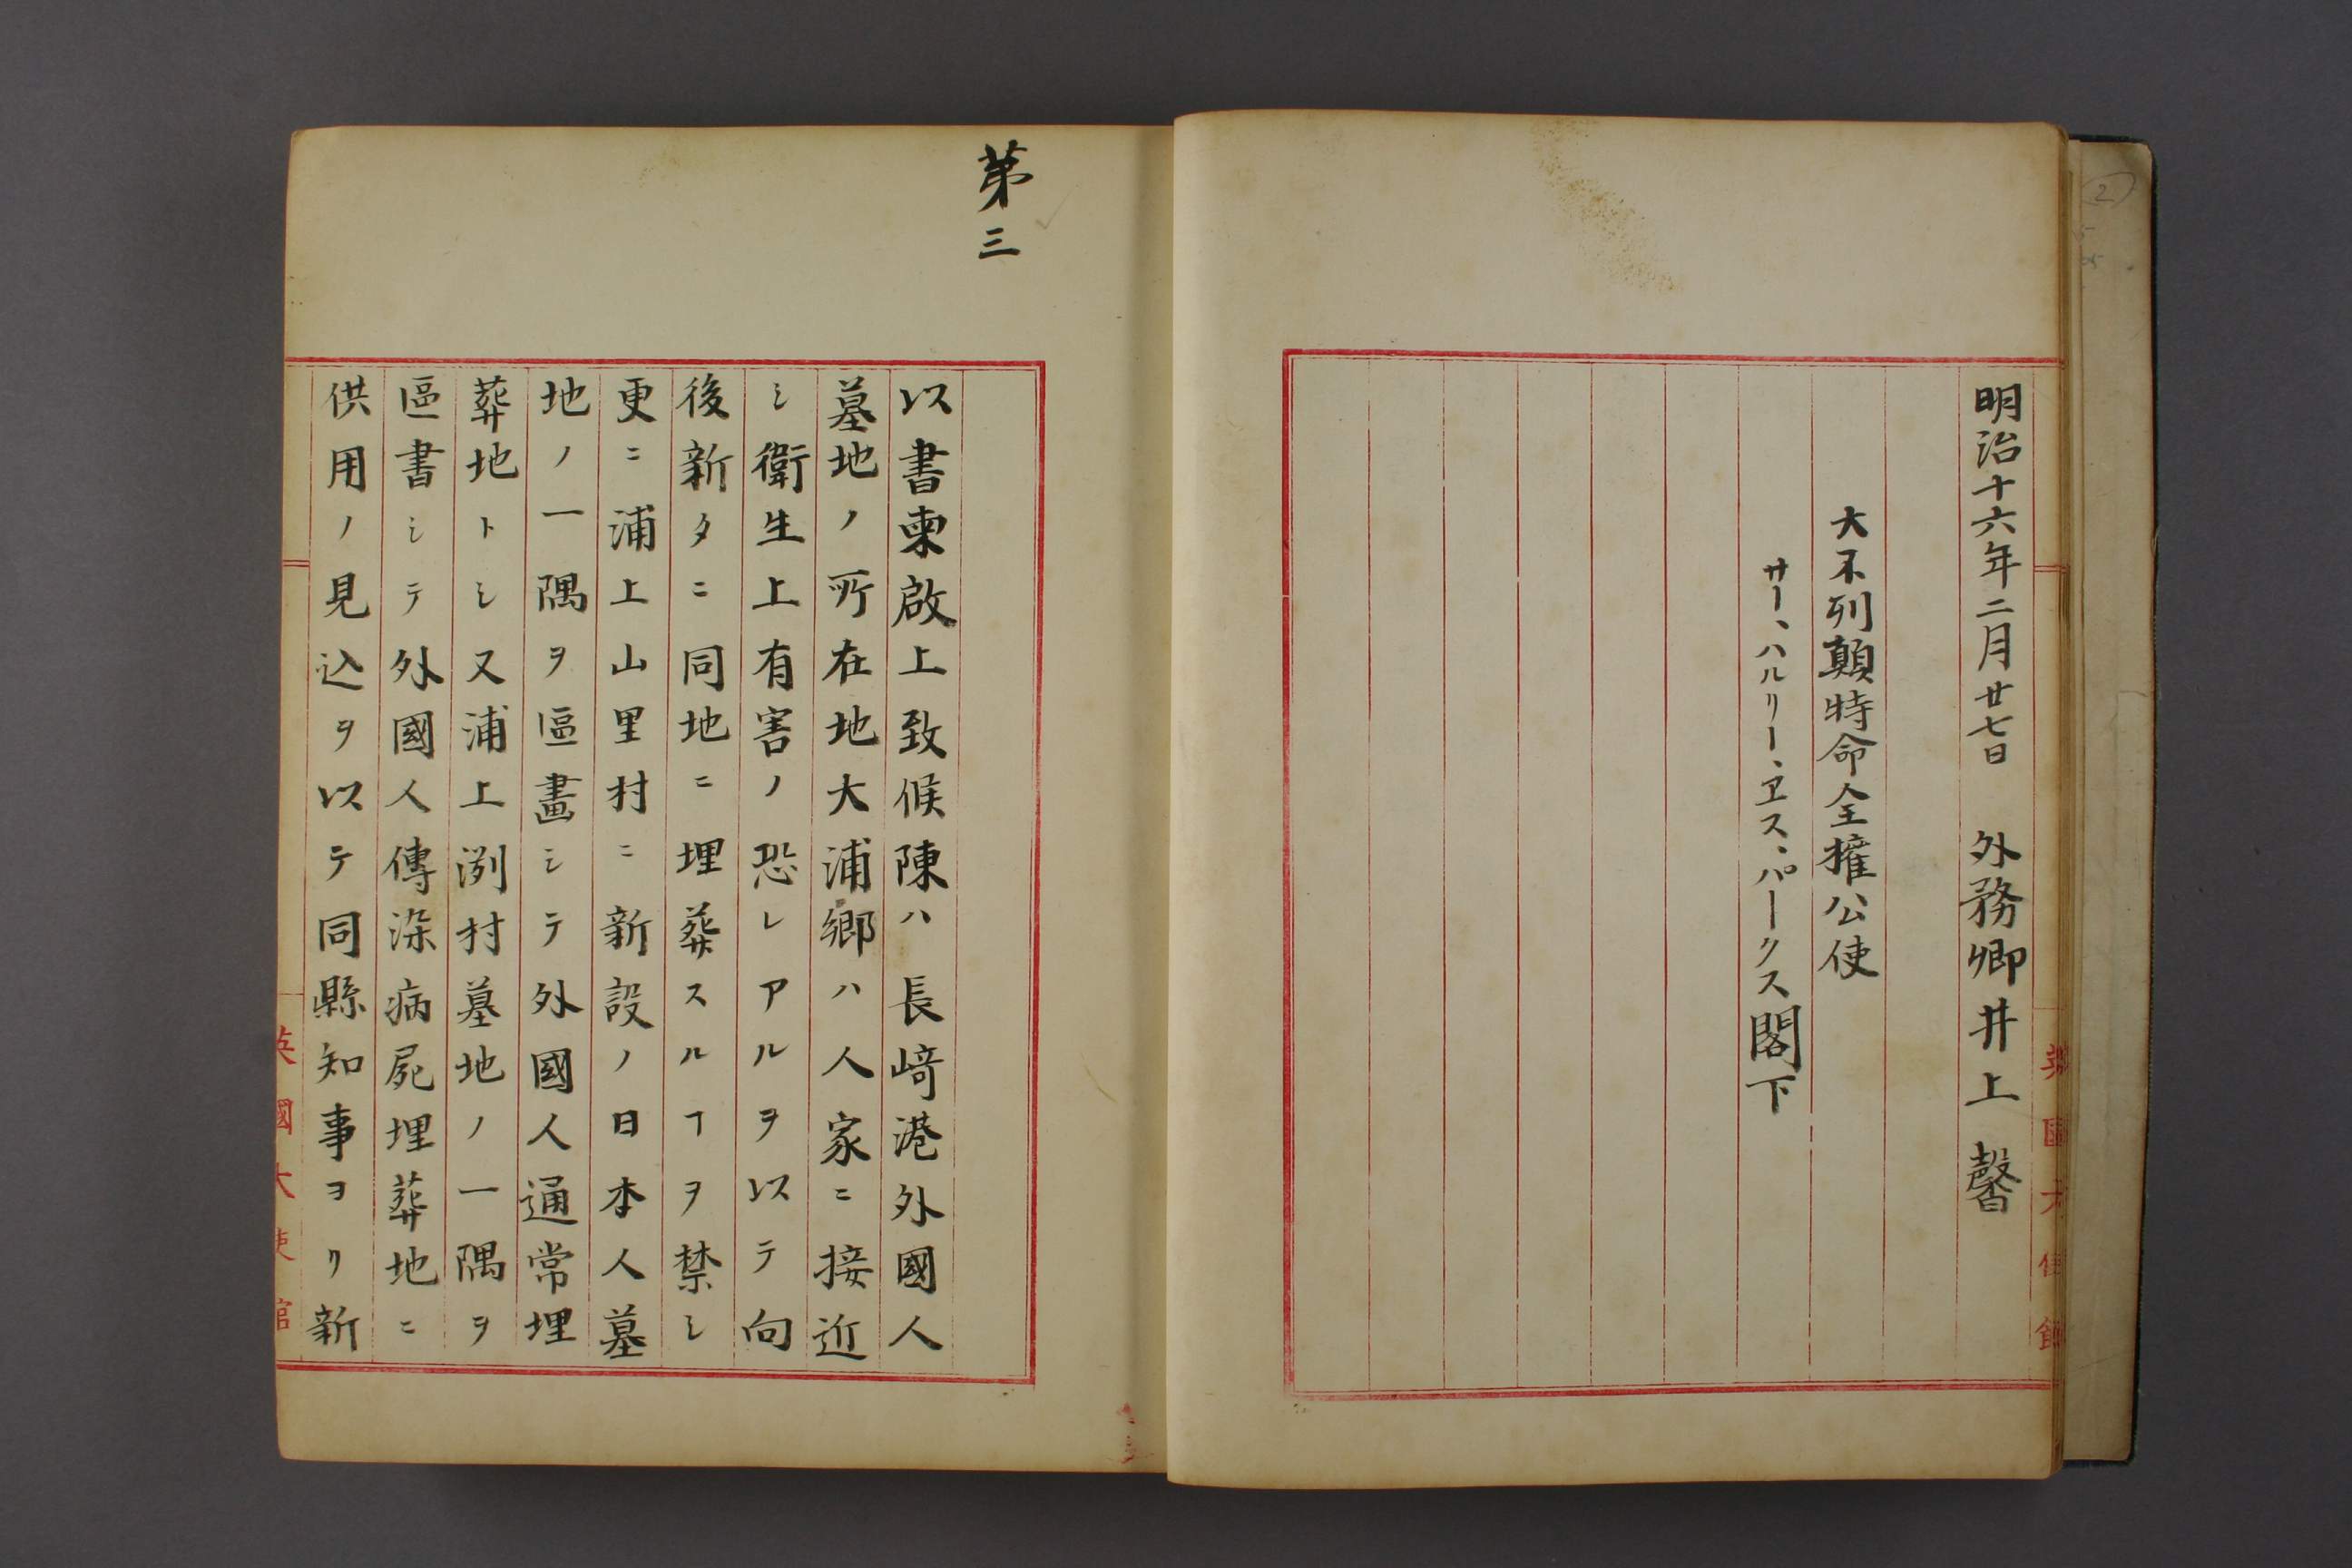 明治十六年二月廿七日 外務卿井上馨
大不列顛特命全權公使
サー、ハルリー、ヱス、パークス閣下
英國大使館
第三
以書柬啟上致候陳ハ長﨑港外國人
墓地ノ所在地大浦郷ハ人家ニ接近
シ衛生上有害ノ恐レアルヲ以テ向
後新タニ同地ニ埋葬スルヿヲ禁シ
更ニ浦上山里村ニ新設ノ日本人墓
地ノ一隅ヲ區畫シテ外國人通常埋
葬地トシ又浦上渕村墓地ノ一隅ヲ
區書シテ外國人傳染病屍埋葬地ニ
供用ノ見込ヲ以テ同縣知事ヨリ新
英國大使館